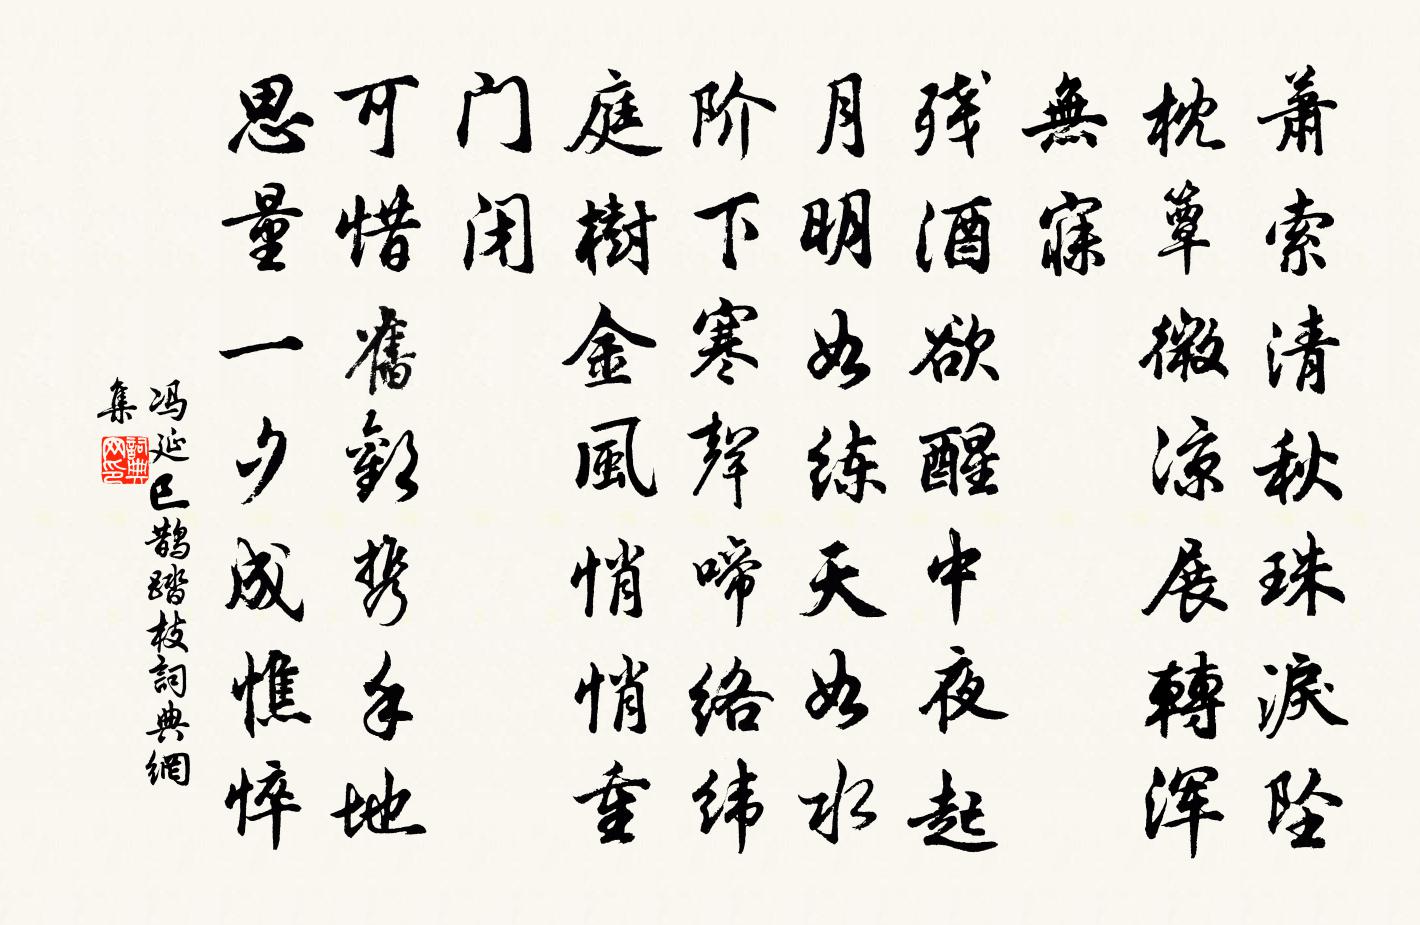 萧索清秋珠淚坠
枕簟微凉展轉浑
無寐
残酒欲醒中夜起
月明如练天如水
阶下寒聲啼络纬
庭樹金風悄悄重
门闭
可惜舊歡携手地
思量一夕成憔悴
冯延巳鹊踏枝詞典網
集
詞典网印